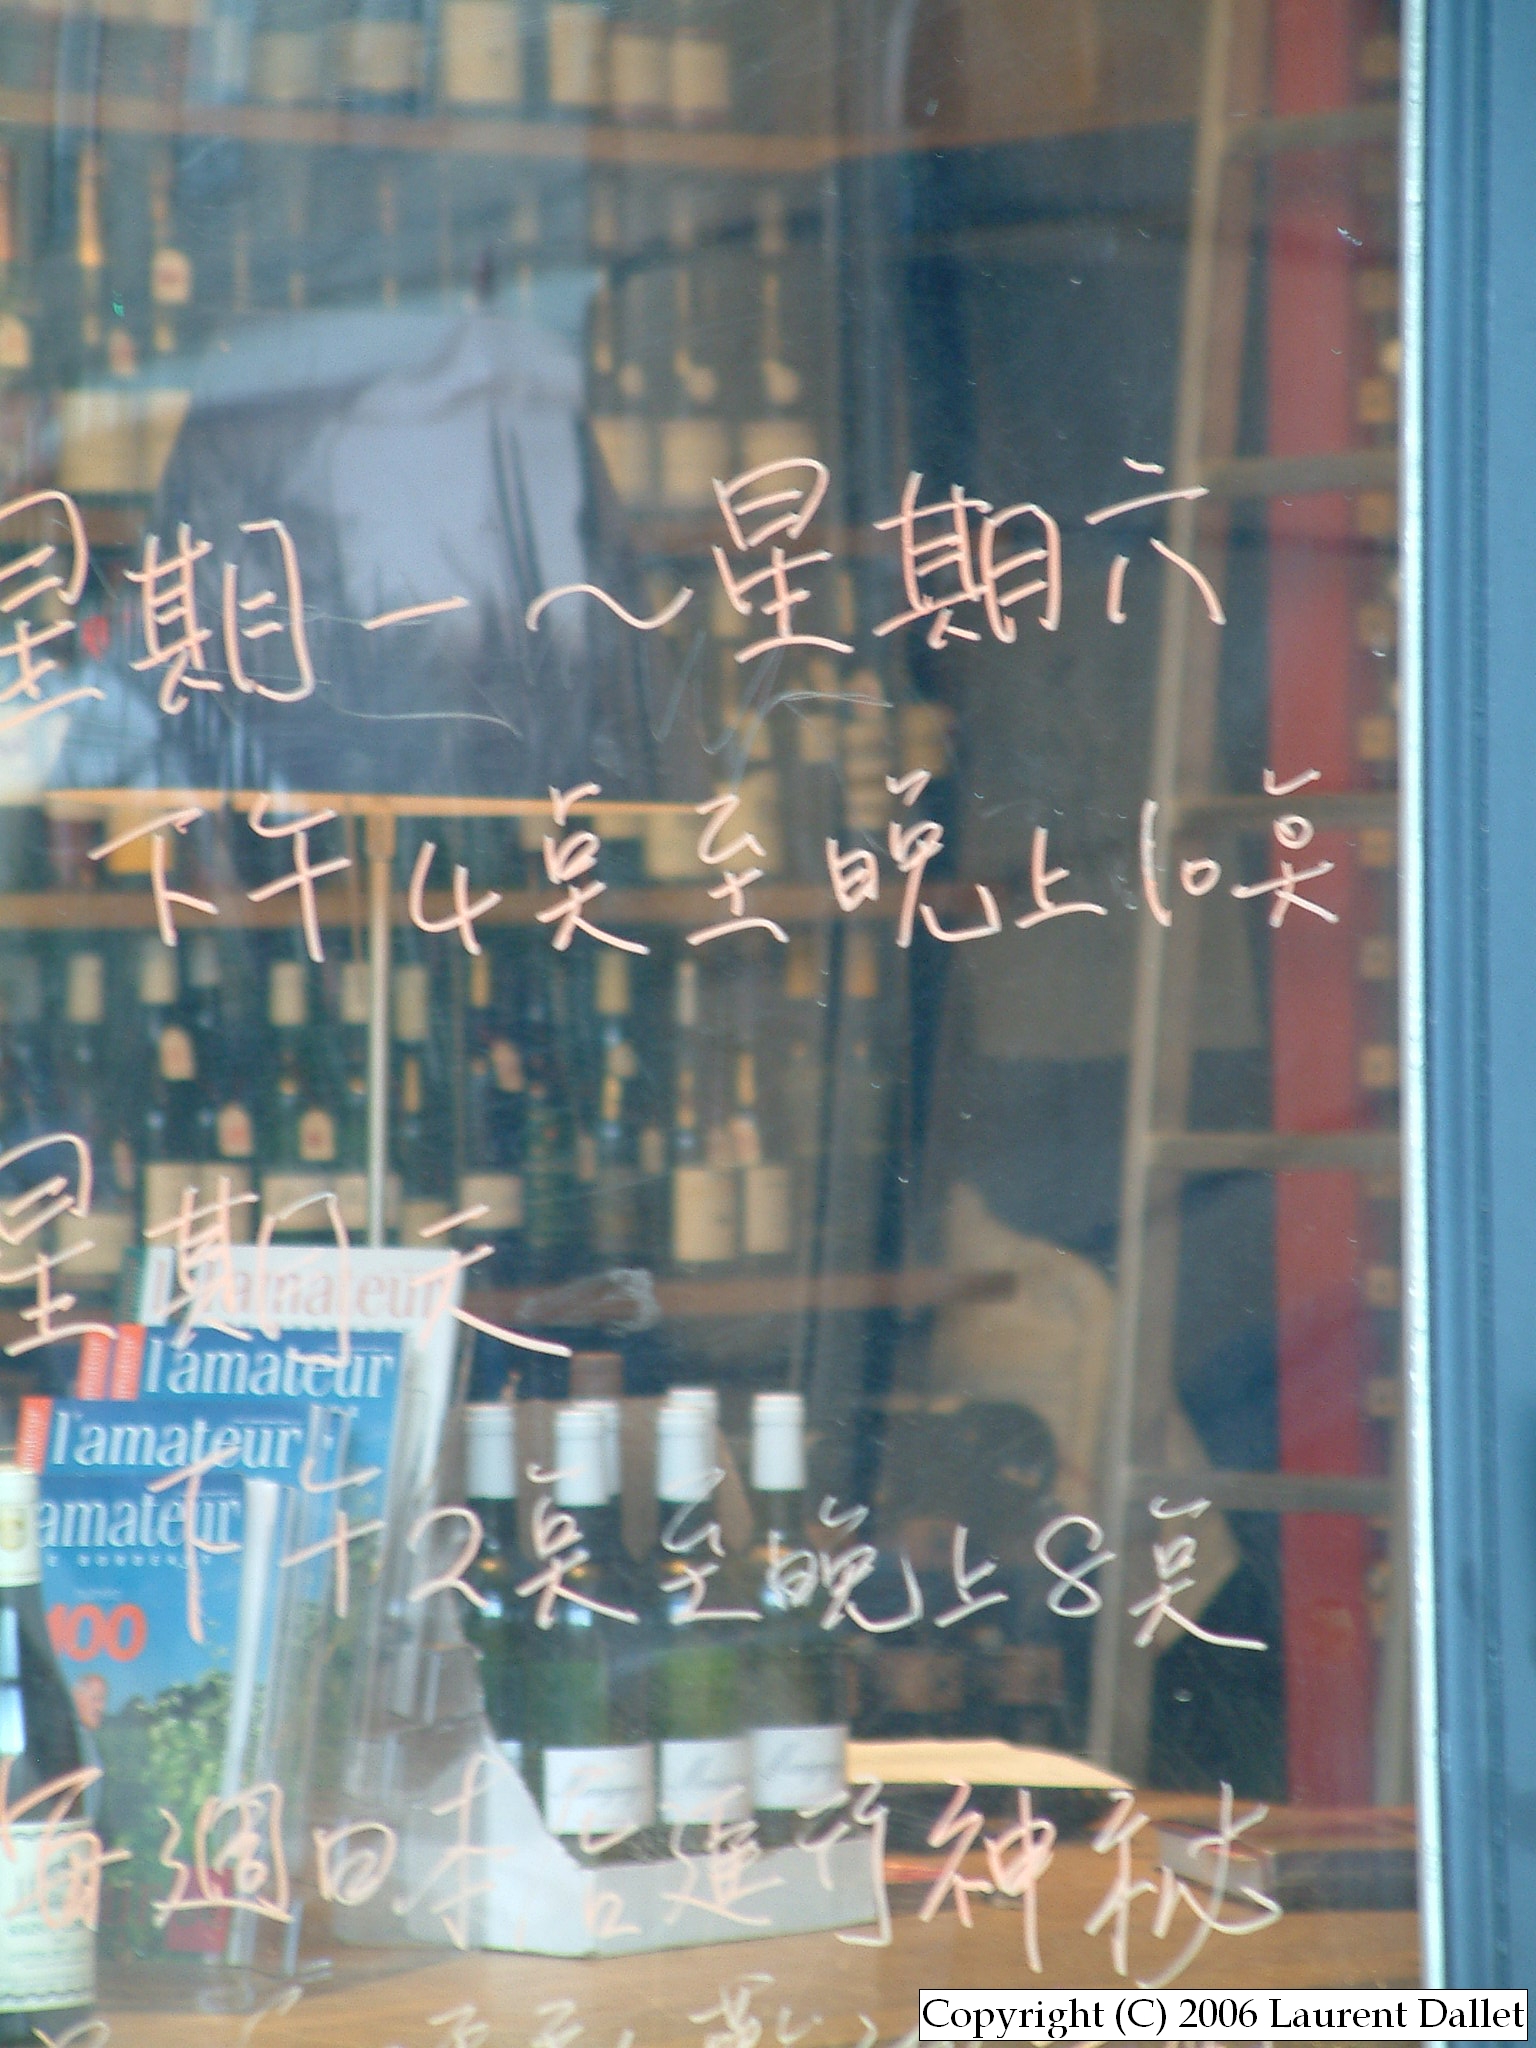 星期一～星期六
下午4点至晚上10点
星期天
l'amateur
l'amateur
l'amateur
amateur
DE BORDEAUX
100
下午2点至晚上8点
每週日本店進行神秘
Copyright (C) 2006 Laurent Dallet